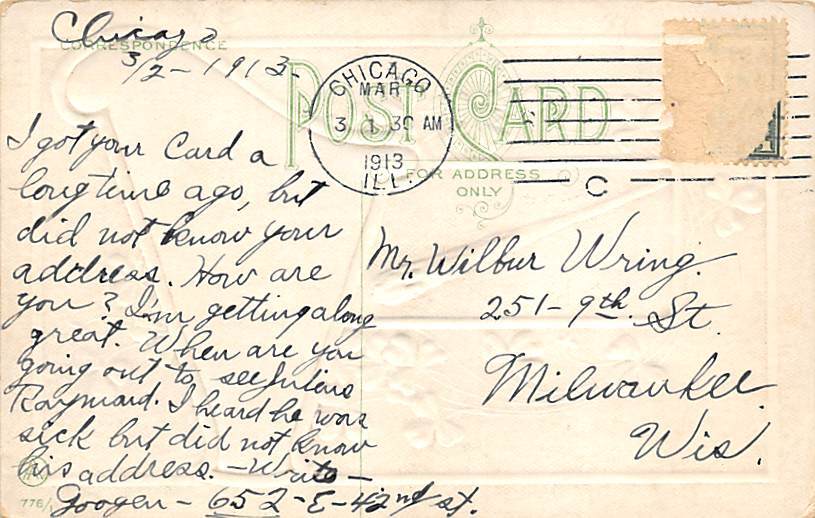 Chicago
CORRESPONDENCE
3/2-1913-
POST CARD
CHICAGO
MAR
3 1 30 AM
1913
ILL.
C
FOR ADDRESS
ONLY
I got your Card a
long time ago, but
did not know your
address. How are
you? I'm getting along
great. When are you
going out to see
Raymond. I heard he was
sick but did not know
his address. - Write -
- 652-E-42nd st.
Mr. Wilbur Wring.
251-9th. St.
Milwaukee.
Wis.
776/